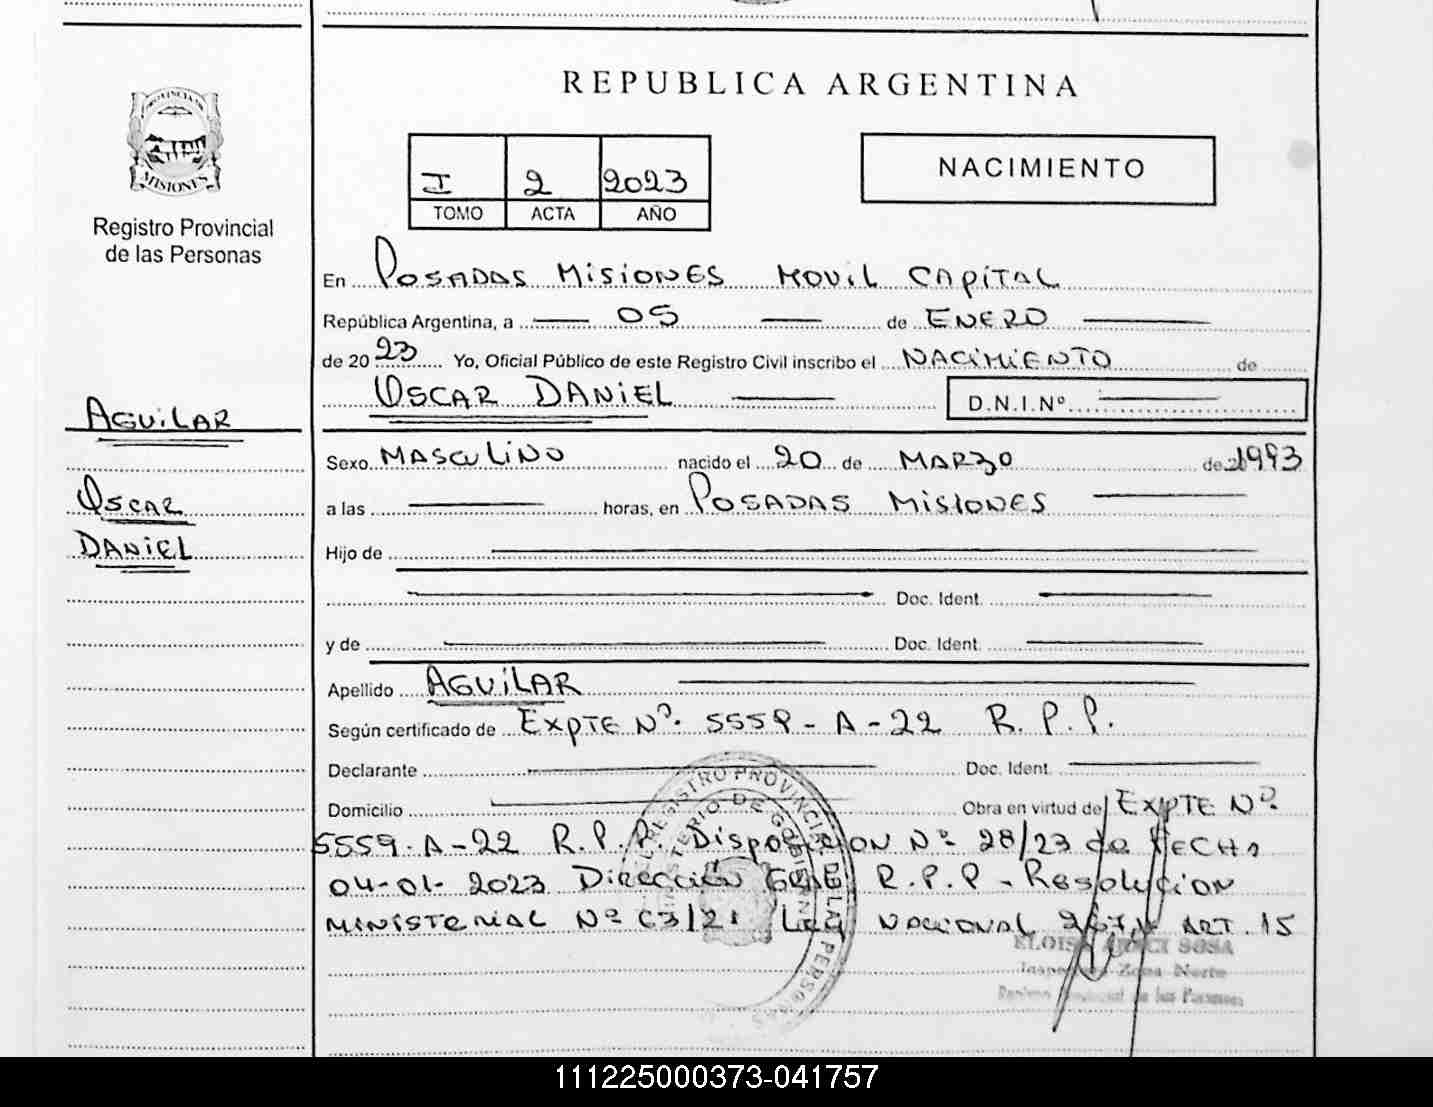 REPUBLICA ARGENTINA
PROVINCIA DE
MISIONES
Registro Provincial
de las Personas
I 2 2023
TOMO ACTA AÑO
NACIMIENTO
En POSADAS MISIONES MOVIL CAPITAL
República Argentina, a 05 de ENERO
de 2023 Yo, Oficial Público de este Registro Civil inscribo el NACIMIENTO de
OSCAR DANIEL D.N.I.Nº
AGUILAR
OSCAR
DANIEL
Sexo MASCULINO nacido el 20 de MARZO de 1993
a las horas, en POSADAS MISIONES
Hijo de
Doc. Ident.
y de Doc. Ident.
Apellido AGUILAR
Según certificado de EXPTE Nº. 5559-A-22 R.P.P.
Declarante Doc. Ident.
Domicilio Obra en virtud de EXPTE Nº.
5559-A-22 R.P.P. Disposicion Nº 28/23 de FECHA
04-01-2023 Dirección GRAL R.P.P - Resolucion
MINISTERIAL Nº Ley NACIONAL ART. 15
REGISTRO PROVINCIAL DE LAS PERSONAS
MINISTERIO DE GOBIERNO
SOSA
Inspectora Zona Norte
Registro Provincial de las Personas
111225000373-041757